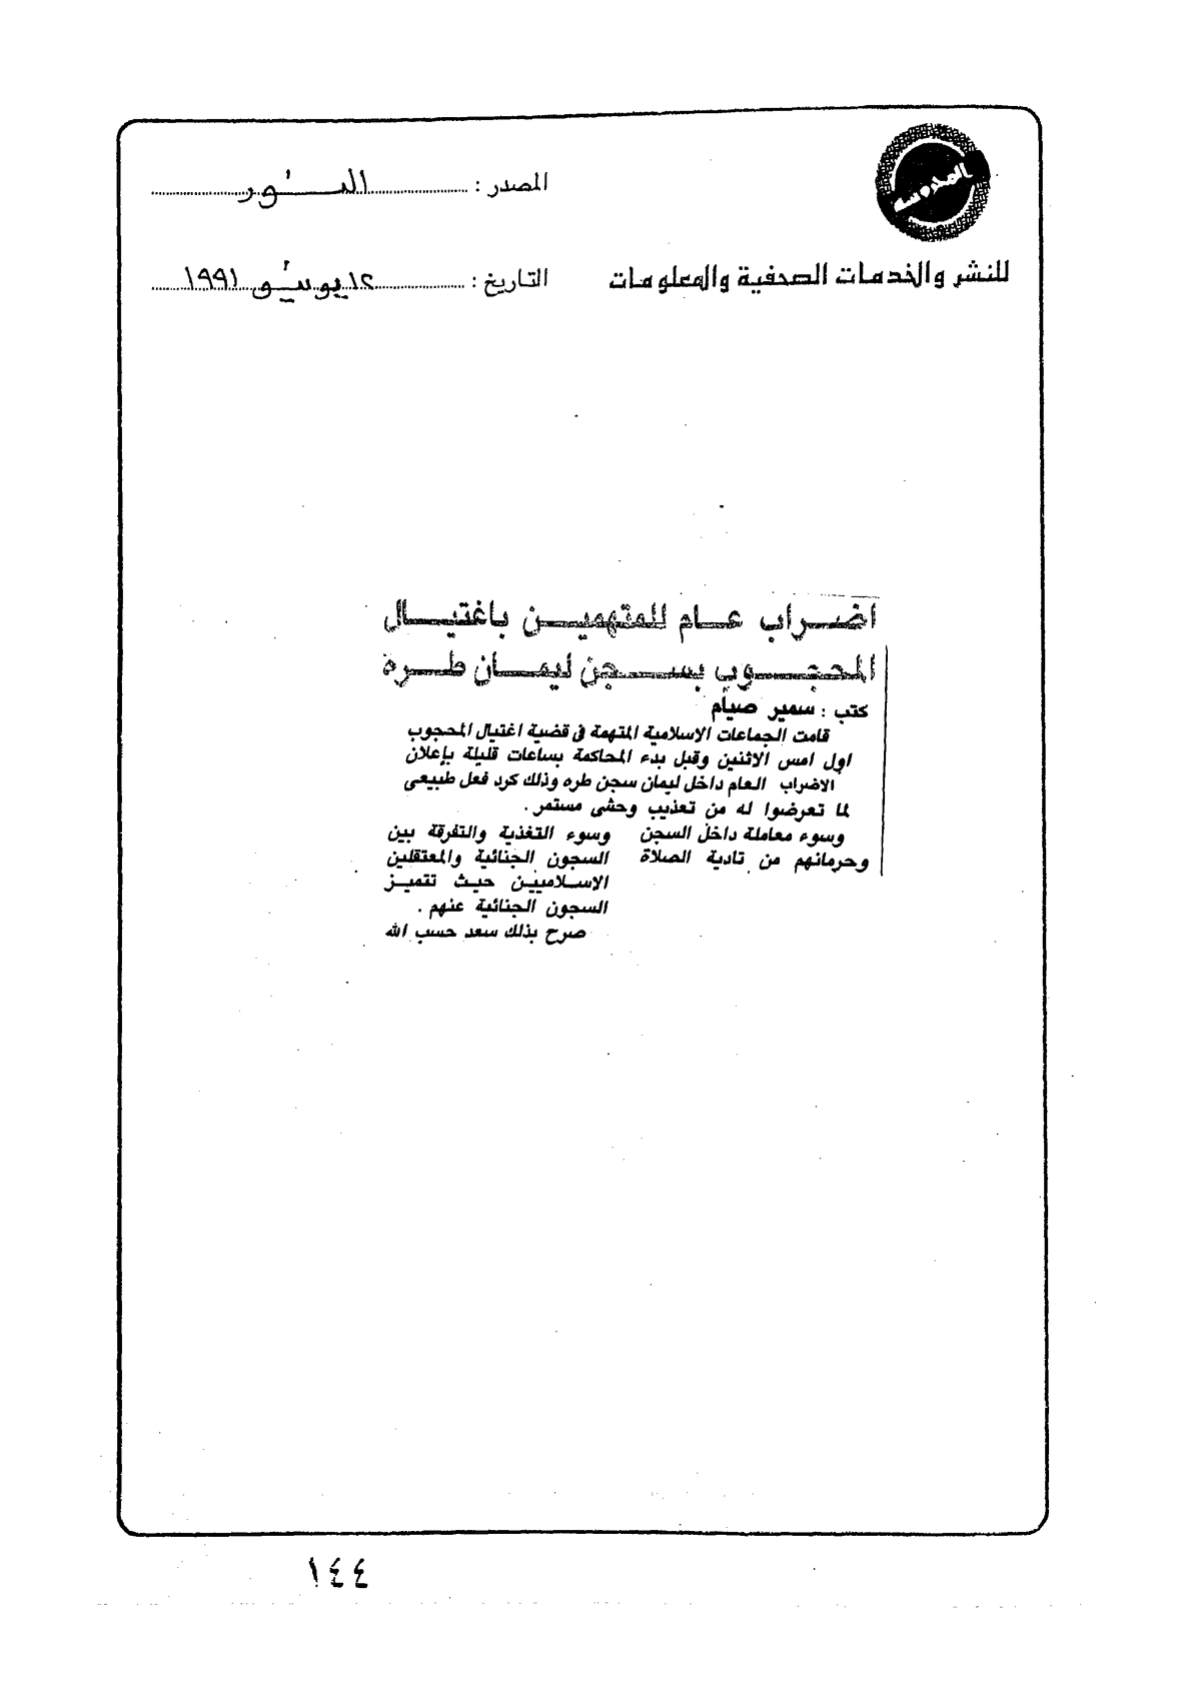 المحروسة
للنشر والخدمات الصحفية والمعلومات
المصدر : النور
التاريخ : ١٢ يونيو ١٩٩١
اضراب عام للمتهمين باغتيال
المحجوب بسجن ليمان طره
كتب : سمير صيام
قامت الجماعات الاسلامية المتهمة فى قضية اغتيال المحجوب
اول امس الاثنين وقبل بدء المحاكمة بساعات قليلة بإعلان
الاضراب العام داخل ليمان سجن طره وذلك كرد فعل طبيعى
لما تعرضوا له من تعذيب وحشى مستمر .
وسوء معاملة داخل السجن
وحرمانهم من تادية الصلاة
وسوء التغذية والتفرقة بين
السجون الجنائية والمعتقلين
الاسلاميين حيث تتميز
السجون الجنائية عنهم .
صرح بذلك سعد حسب الله
١٤٤